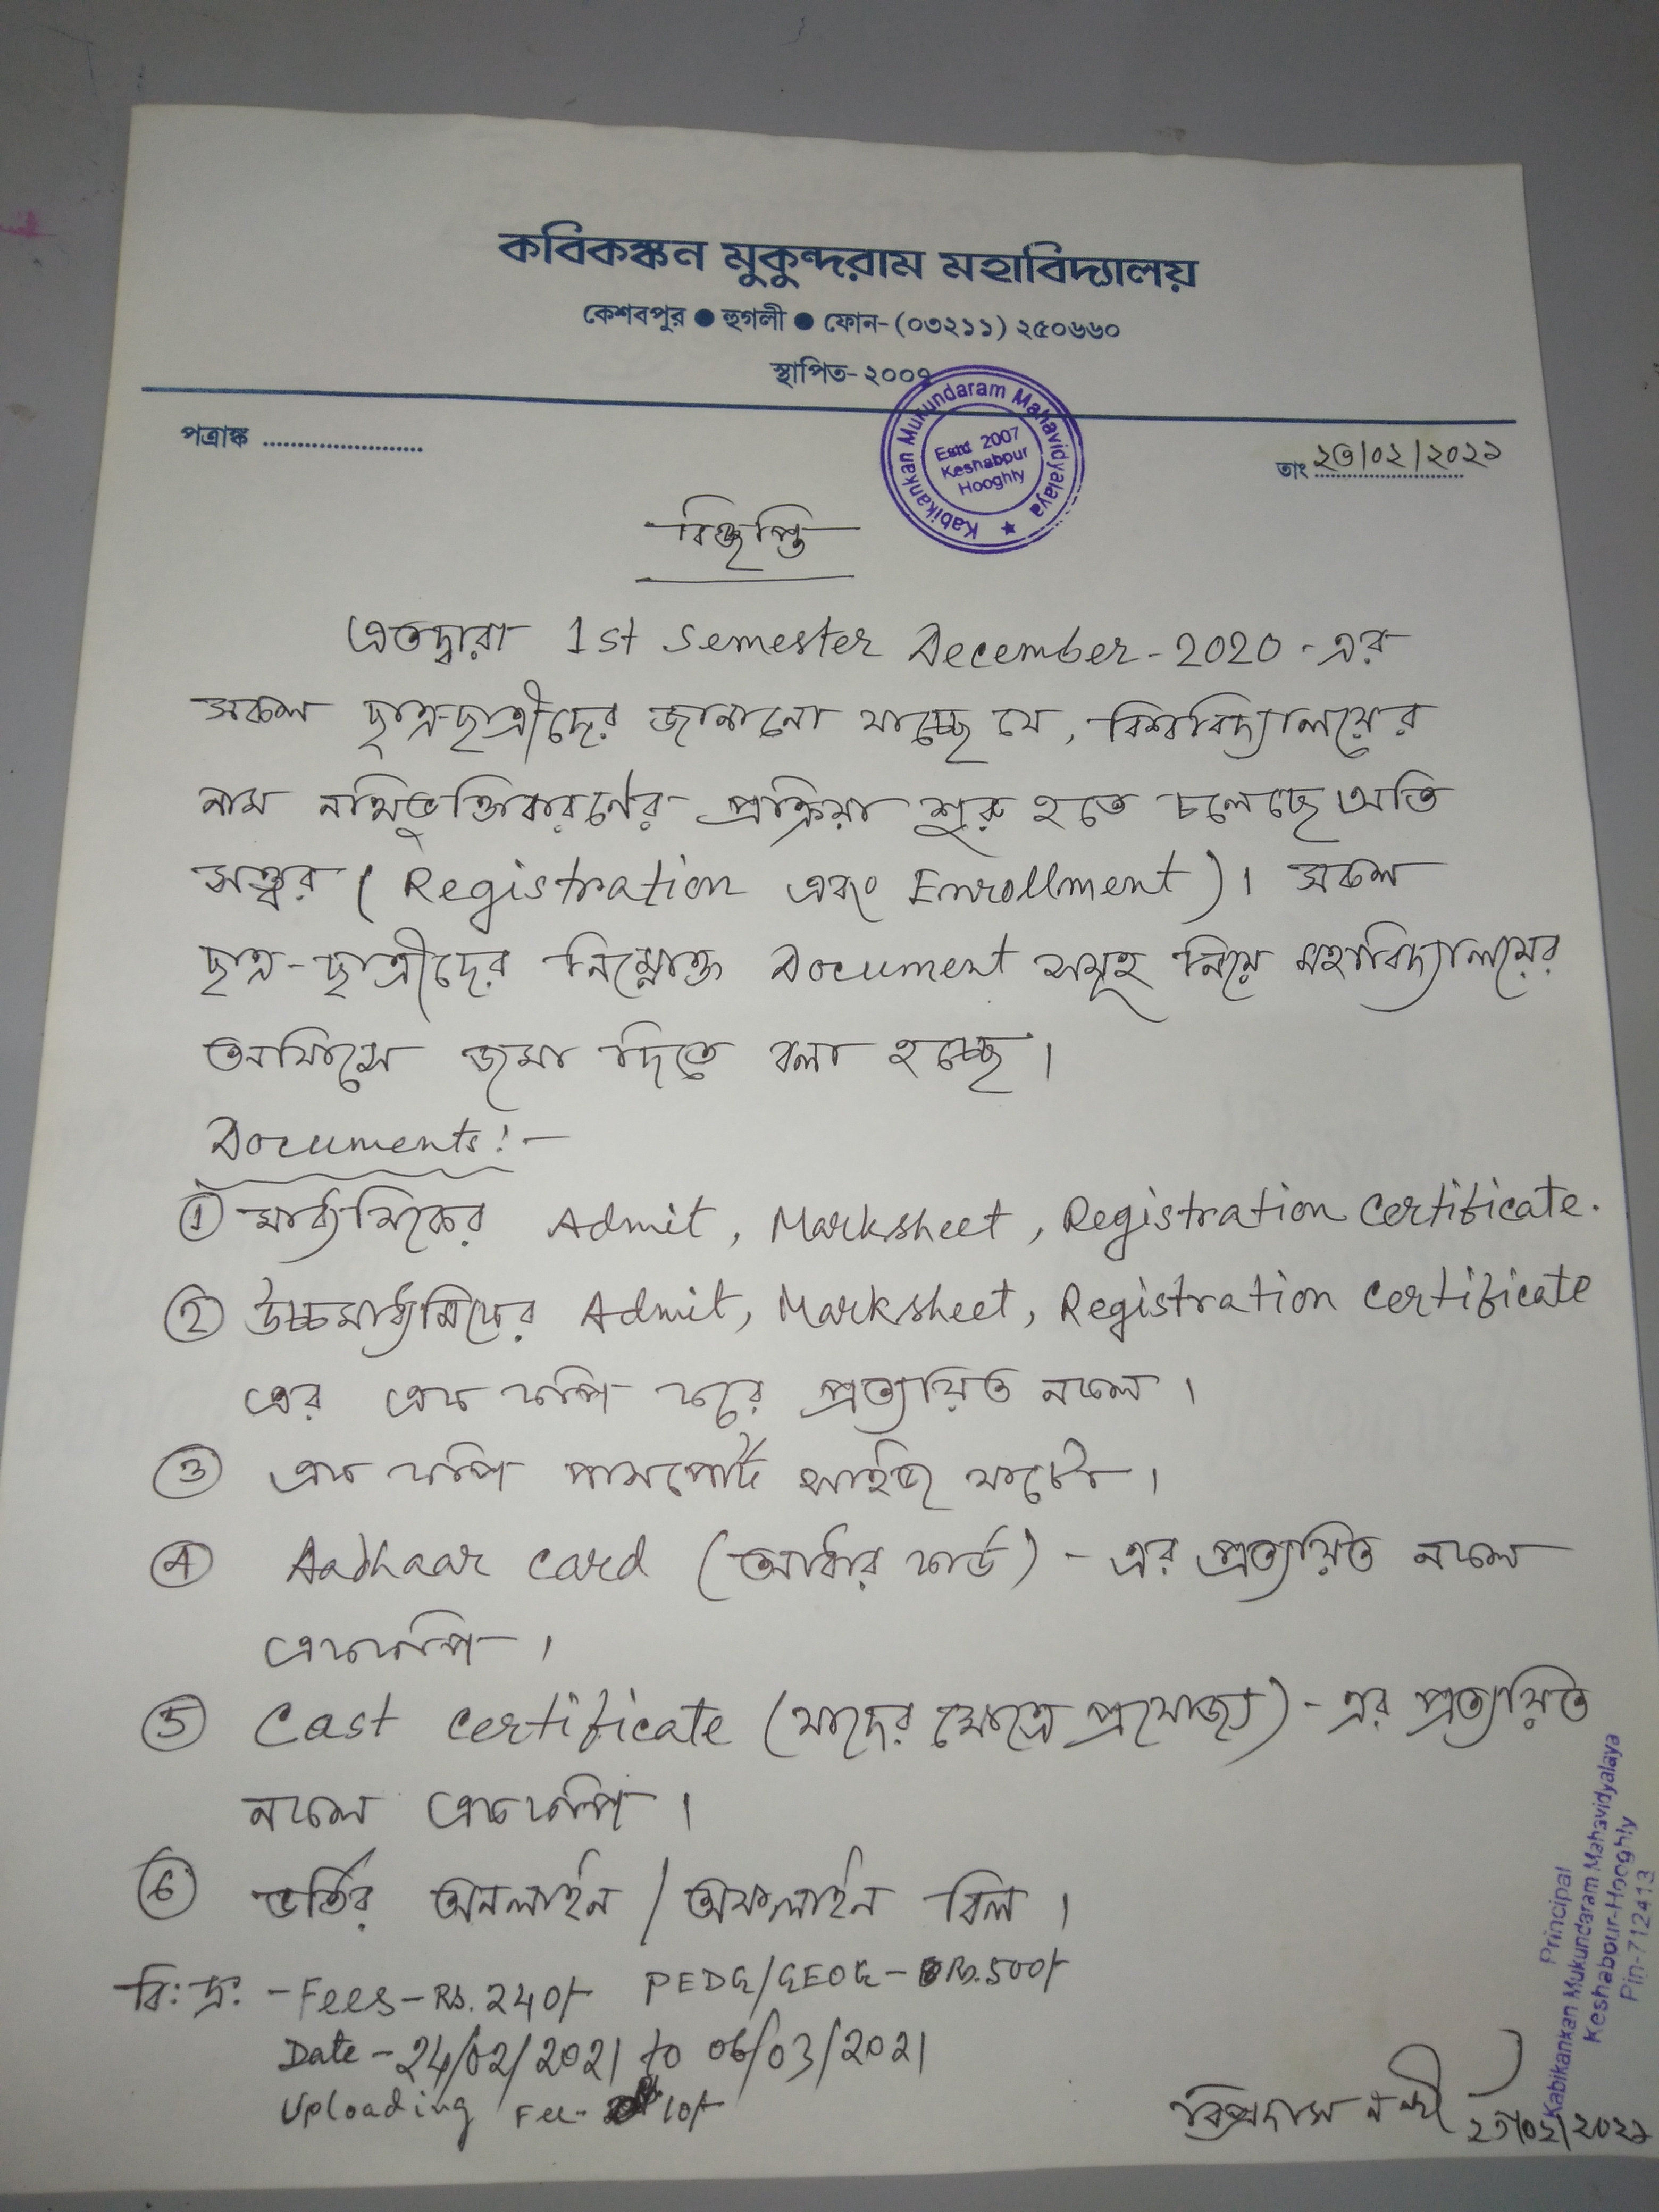 কবিকঙ্কন মুকুন্দরাম মহাবিদ্যালয়
কেশবপুর ● হুগলী ● ফোন-(০৩২১১) ২৫০৬৬০
স্থাপিত-২০০৭
Kabikankan Mukundaram Mahavidyalaya ★
Estd 2007
Keshabpur
Hooghly
পত্রাঙ্ক ........................
তাং ২৩/০২/২০২১
বিজ্ঞপ্তি
এতদ্বারা 1st Semester December-2020-এর
সকল ছাত্র-ছাত্রীদের জানানো যাচ্ছে যে, বিশ্ববিদ্যালয়ের
নাম নথিভুক্তিকরণের প্রক্রিয়া শুরু হতে চলেছে অতি
সত্ত্বর (Registration এবং Enrollment)। সকল
ছাত্র-ছাত্রীদের নিম্নোক্ত Document সমূহ নিয়ে মহাবিদ্যালয়ের
অফিসে জমা দিতে বলা হচ্ছে।
Documents:-
① মাধ্যমিকের Admit, Marksheet, Registration Certificate.
② উচ্চমাধ্যমিকের Admit, Marksheet, Registration Certificate
এর এক কপি করে প্রত্যয়িত নকল।
③ এক কপি পাসপোর্ট সাইজ ফটো।
④ Aadhaar Card (আধার কার্ড)-এর প্রত্যয়িত নকল
এককপি।
⑤ Cast Certificate (যাদের ক্ষেত্রে প্রযোজ্য)-এর প্রত্যয়িত
নকল এককপি।
⑥ ভর্তির অনলাইন / অফলাইন বিল।
বি: দ্র: - Fees - Rs. 240/- PEDG/GEOG - Rs. 500/-
Date - 24/02/2021 to 06/03/2021
Uploading Fee - 10/-
বিপ্রদাস নন্দী
২৩/০২/২০২১
Principal
Kabikankan Mukundaram Mahavidyalaya
Keshabpur-Hooghly
Pin-712413